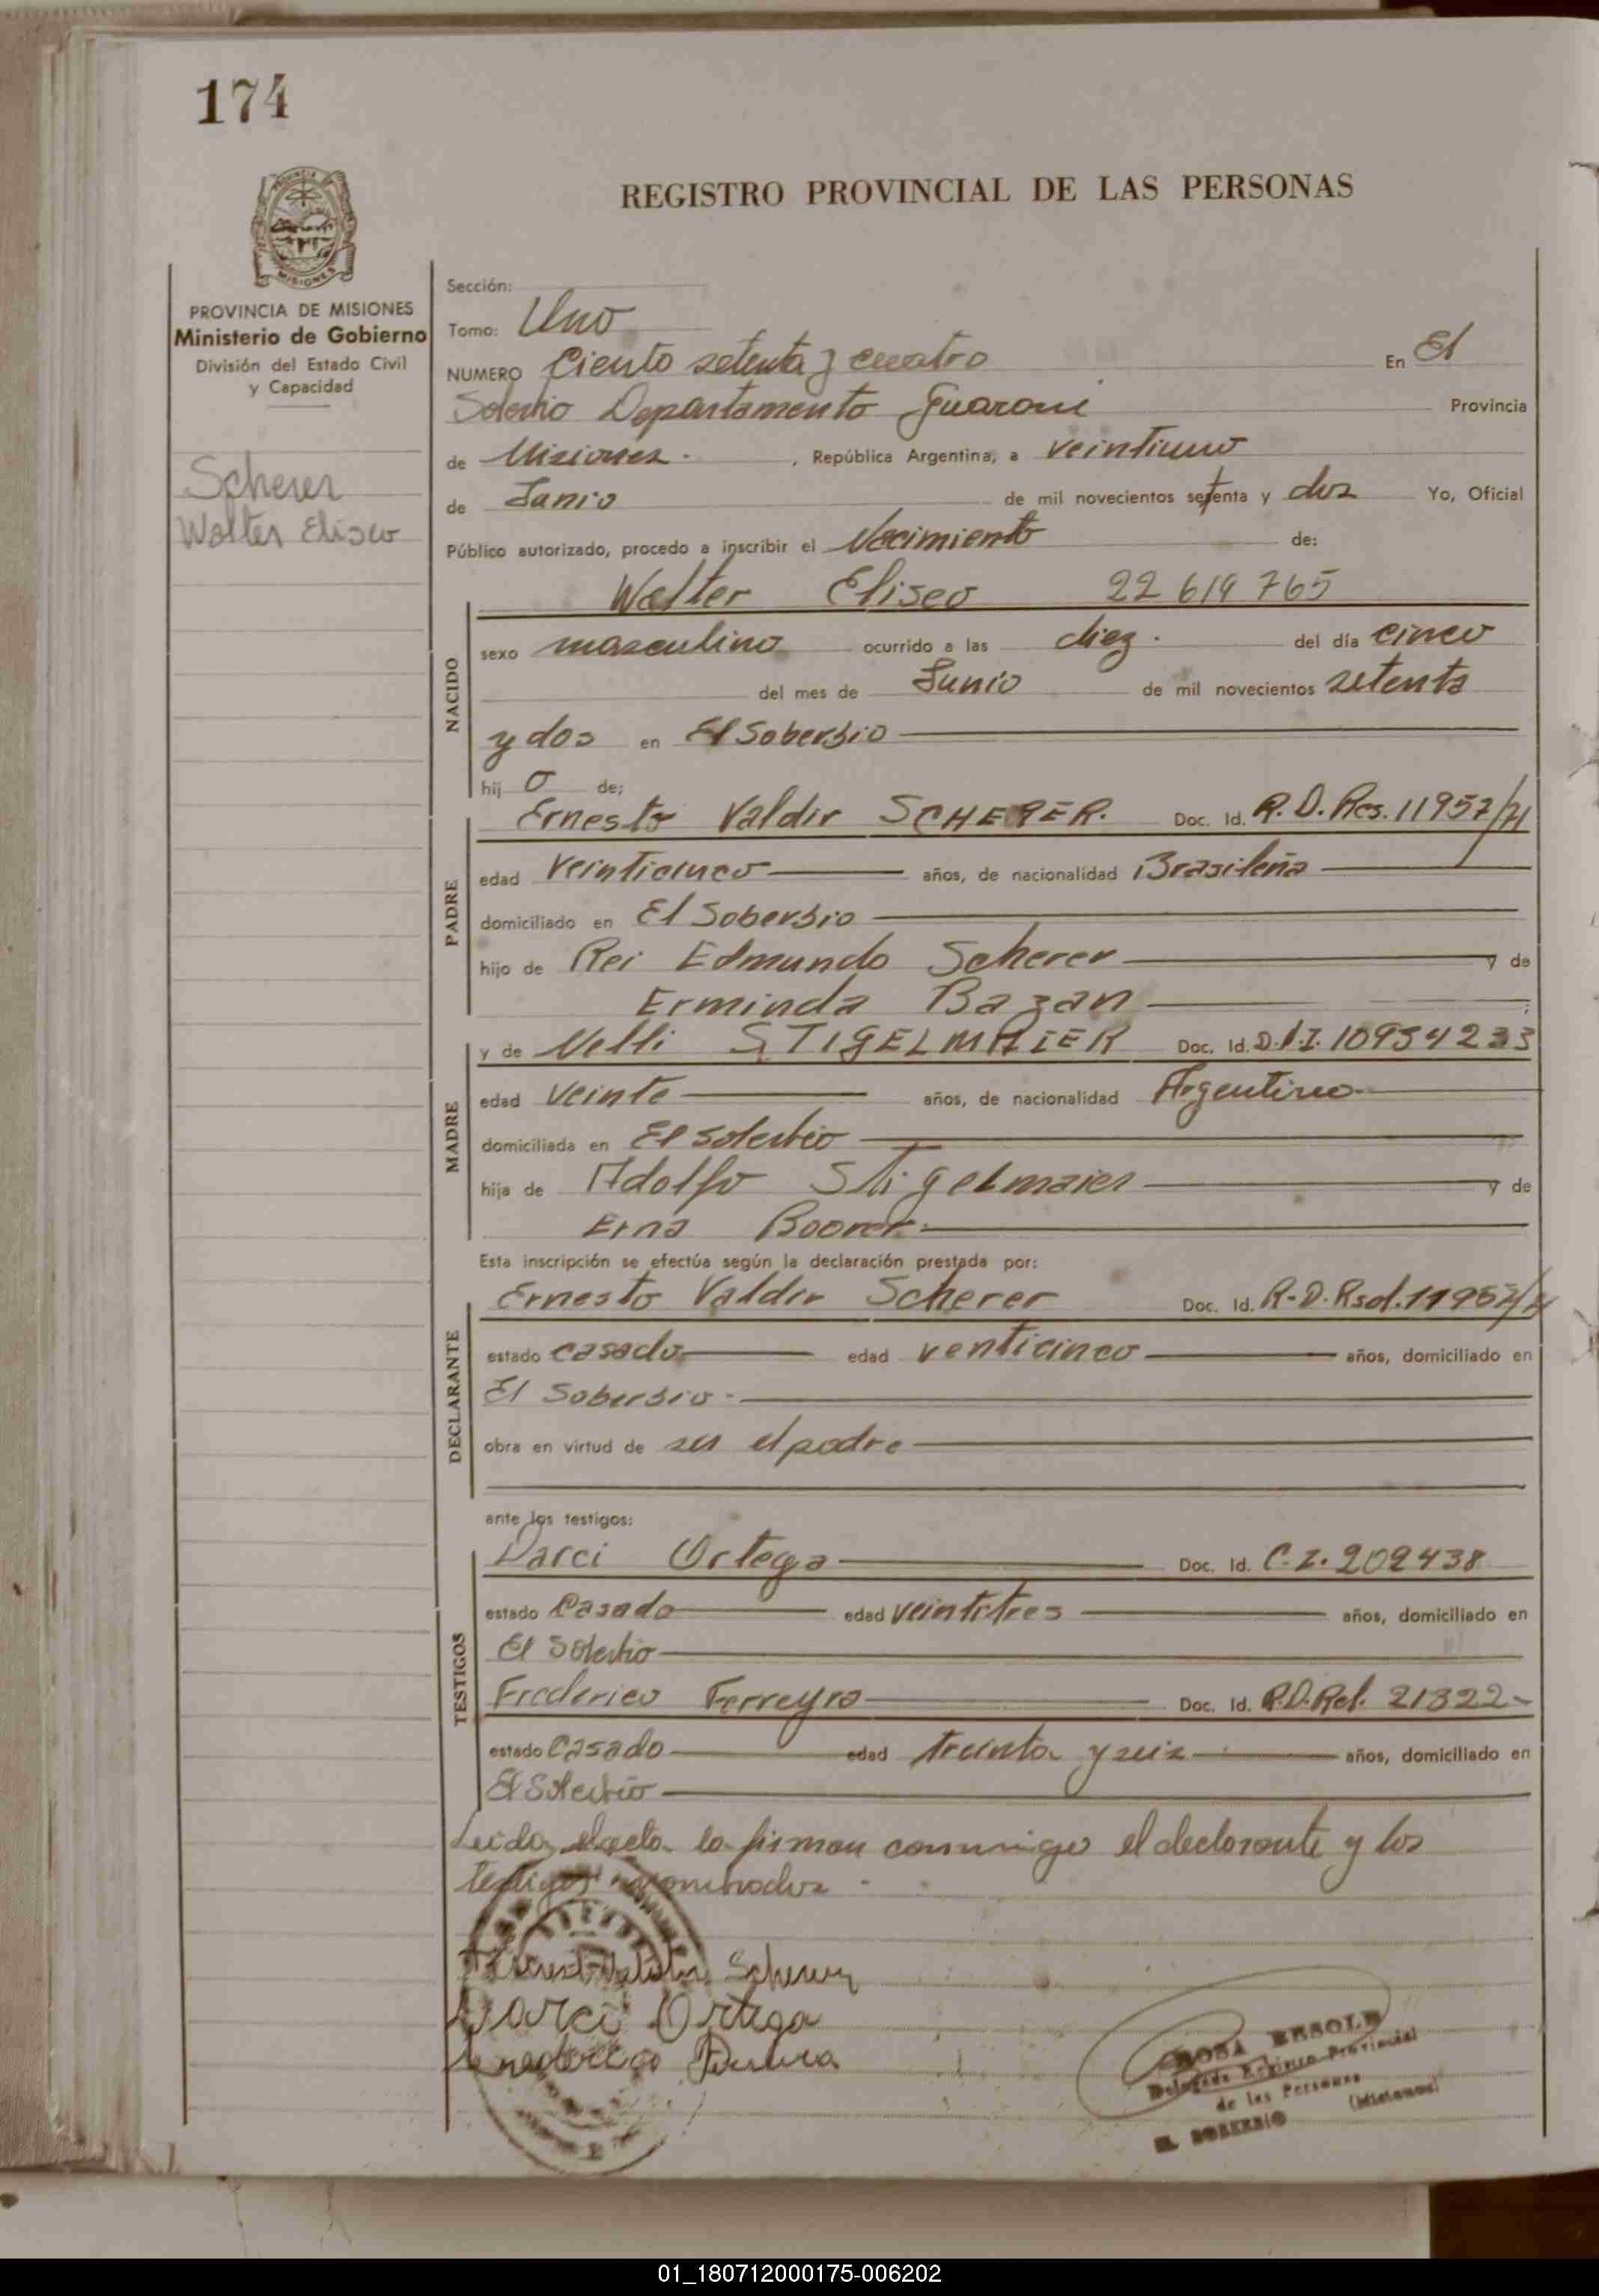 174
REGISTRO PROVINCIAL DE LAS PERSONAS
MISIONES
PROVINCIA DE MISIONES
Ministerio de Gobierno
División del Estado Civil
y Capacidad
Scherer
Walter Eliseo
Sección:
Tomo: Uno
NUMERO Ciento setenta y cuatro En El
Soberbio Departamento Guarani Provincia
de Misiones. , República Argentina, a veintiuno
de Junio de mil novecientos setenta y dos Yo, Oficial
Público autorizado, procedo a inscribir el Nacimiento de:
Walter Eliseo 22 619 765
NACIDO
sexo masculino ocurrido a las diez. del día cinco
del mes de Junio de mil novecientos setenta
y dos en El Soberbio
hij o de;
Ernesto Valdir SCHERER. Doc. Id. R.D. Res. 11957/71
PADRE
edad veinticinco años, de nacionalidad Brasileña
domiciliado en El Soberbio
hijo de Rei Edmundo Scherer y de
Erminda Bazan ;
y de Nelli STIGELMAIER Doc. Id. D.N.I. 10934233
MADRE
edad veinte años, de nacionalidad Argentina
domiciliada en El Soberbio
hija de Adolfo Stigelmaier y de
Erna
Esta inscripción se efectúa según la declaración prestada por:
Ernesto Valdir Scherer Doc. Id. R.D. Rsol. 11957/71
DECLARANTE
estado casado edad venticinco años, domiciliado en
El Soberbio.
obra en virtud de ser el padre
ante los testigos:
Darci Ortega Doc. Id. C.I. 202438
TESTIGOS
estado Casado edad veintitres años, domiciliado en
El Soberbio
Frederico Ferreyra Doc. Id. R.D. Rel. 21322
estado Casado edad treinta y seis años, domiciliado en
El Soberbio
Leida el acta la firman conmigo el declarante y los
testigos nominados.
Scherer
Darci Ortega
ROSA BESOLD
Delegada Registro Provincial
de las Personas
EL SOBERBIO (Misiones)
01_180712000175-006202